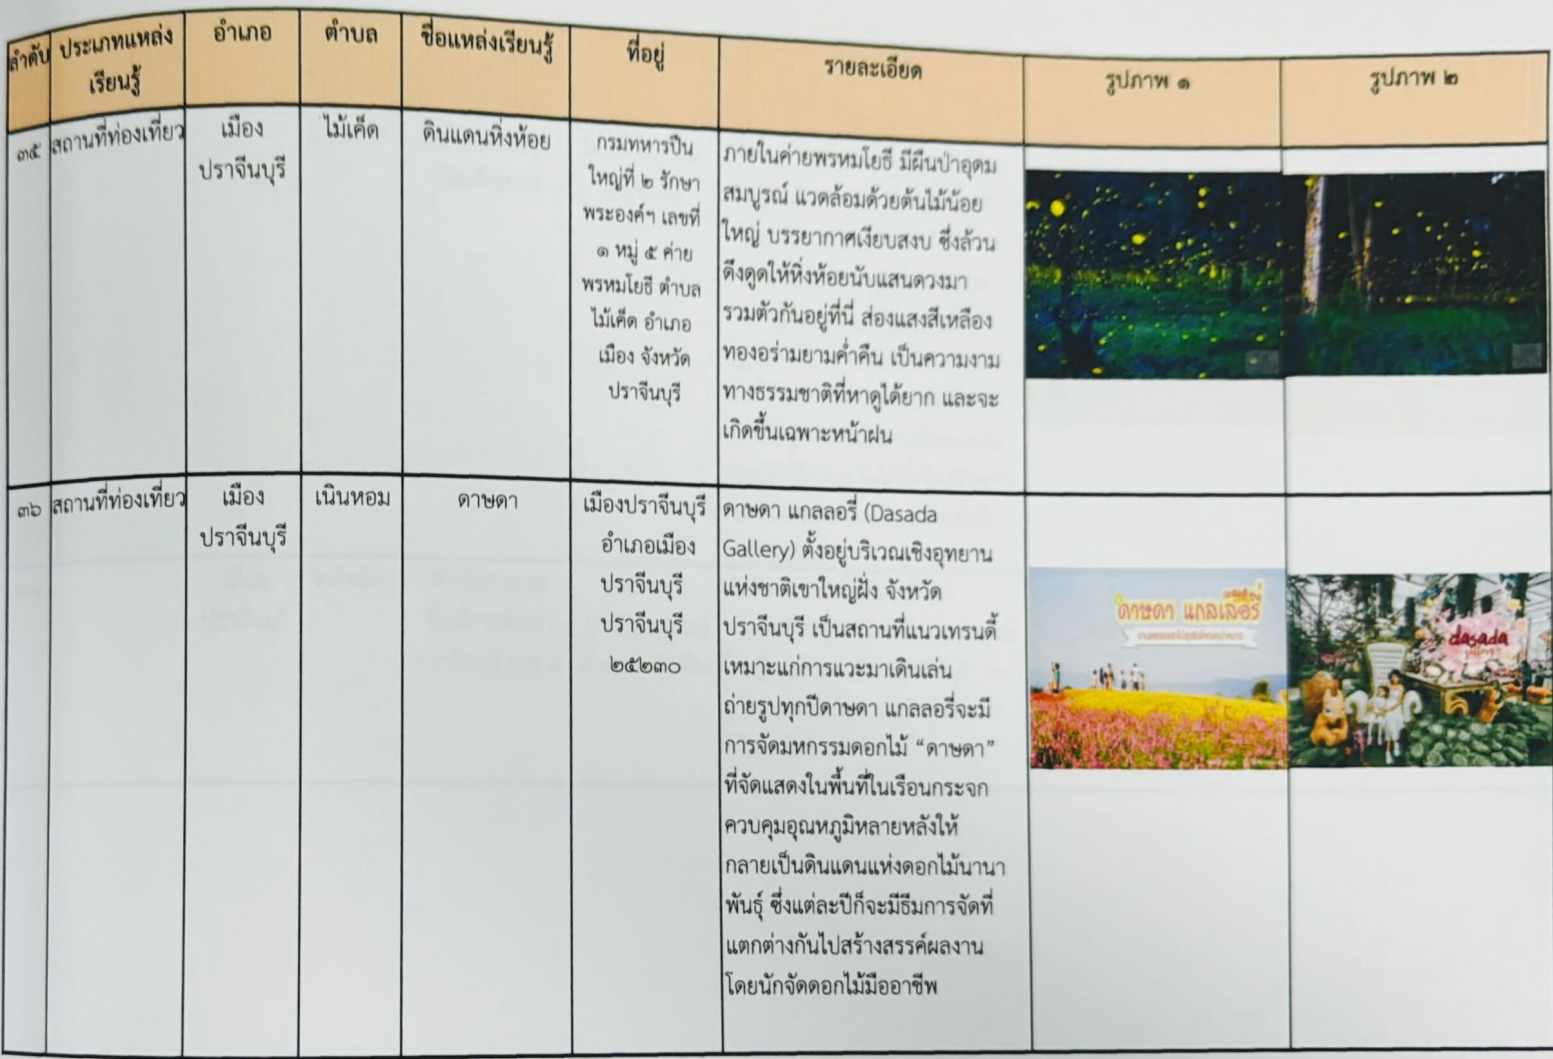 ลำดับ
ประเภทแหล่ง
เรียนรู้
อำเภอ
ตำบล
ชื่อแหล่งเรียนรู้
ที่อยู่
รายละเอียด
รูปภาพ ๑
รูปภาพ ๒
๓๕
สถานที่ท่องเที่ยว
เมือง
ปราจีนบุรี
ไม้เค็ด
ดินแดนหิ่งห้อย
กรมทหารปืน
ใหญ่ที่ ๒ รักษา
พระองค์ฯ เลขที่
๑ หมู่ ๕ ค่าย
พรหมโยธี ตำบล
ไม้เค็ด อำเภอ
เมือง จังหวัด
ปราจีนบุรี
ภายในค่ายพรหมโยธี มีผืนป่าอุดม
สมบูรณ์ แวดล้อมด้วยต้นไม้น้อย
ใหญ่ บรรยากาศเงียบสงบ ซึ่งล้วน
ดึงดูดให้หิ่งห้อยนับแสนดวงมา
รวมตัวกันอยู่ที่นี่ ส่องแสงสีเหลือง
ทองอร่ามยามค่ำคืน เป็นความงาม
ทางธรรมชาติที่หาดูได้ยาก และจะ
เกิดขึ้นเฉพาะหน้าฝน
๓๖
สถานที่ท่องเที่ยว
เมือง
ปราจีนบุรี
เนินหอม
ดาษดา
เมืองปราจีนบุรี
อำเภอเมือง
ปราจีนบุรี
ปราจีนบุรี
๒๕๒๓๐
ดาษดา แกลลอรี่ (Dasada
Gallery) ตั้งอยู่บริเวณเชิงอุทยาน
แห่งชาติเขาใหญ่ฝั่ง จังหวัด
ปราจีนบุรี เป็นสถานที่แนวเทรนดี้
เหมาะแก่การแวะมาเดินเล่น
ถ่ายรูปทุกปีดาษดา แกลลอรี่จะมี
การจัดมหกรรมดอกไม้ “ดาษดา”
ที่จัดแสดงในพื้นที่ในเรือนกระจก
ควบคุมอุณหภูมิหลายหลังให้
กลายเป็นดินแดนแห่งดอกไม้นานา
พันธุ์ ซึ่งแต่ละปีก็จะมีธีมการจัดที่
แตกต่างกันไปสร้างสรรค์ผลงาน
โดยนักจัดดอกไม้มืออาชีพ
ดาษดา แกลเลอรี่
dasada
gallery